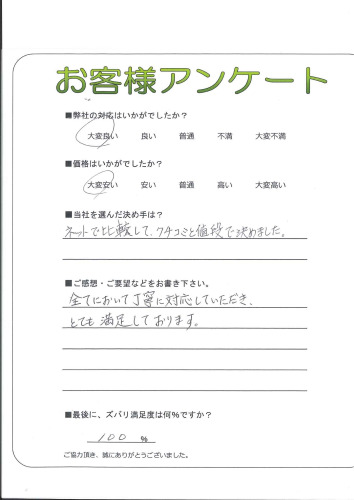 お客様アンケート
■弊社の対応はいかがでしたか?
大変良い 良い 普通 不満 大変不満
■価格はいかがでしたか?
大変安い 安い 普通 高い 大変高い
■当社を選んだ決め手は?
ネットで比較して、クチコミと値段で決めました。
■ご感想・ご要望などをお書き下さい。
全てにおいて丁寧に対応していただき、
とても満足しております。
■最後に、ズバリ満足度は何%ですか?
100 %
ご協力頂き、誠にありがとうございました。